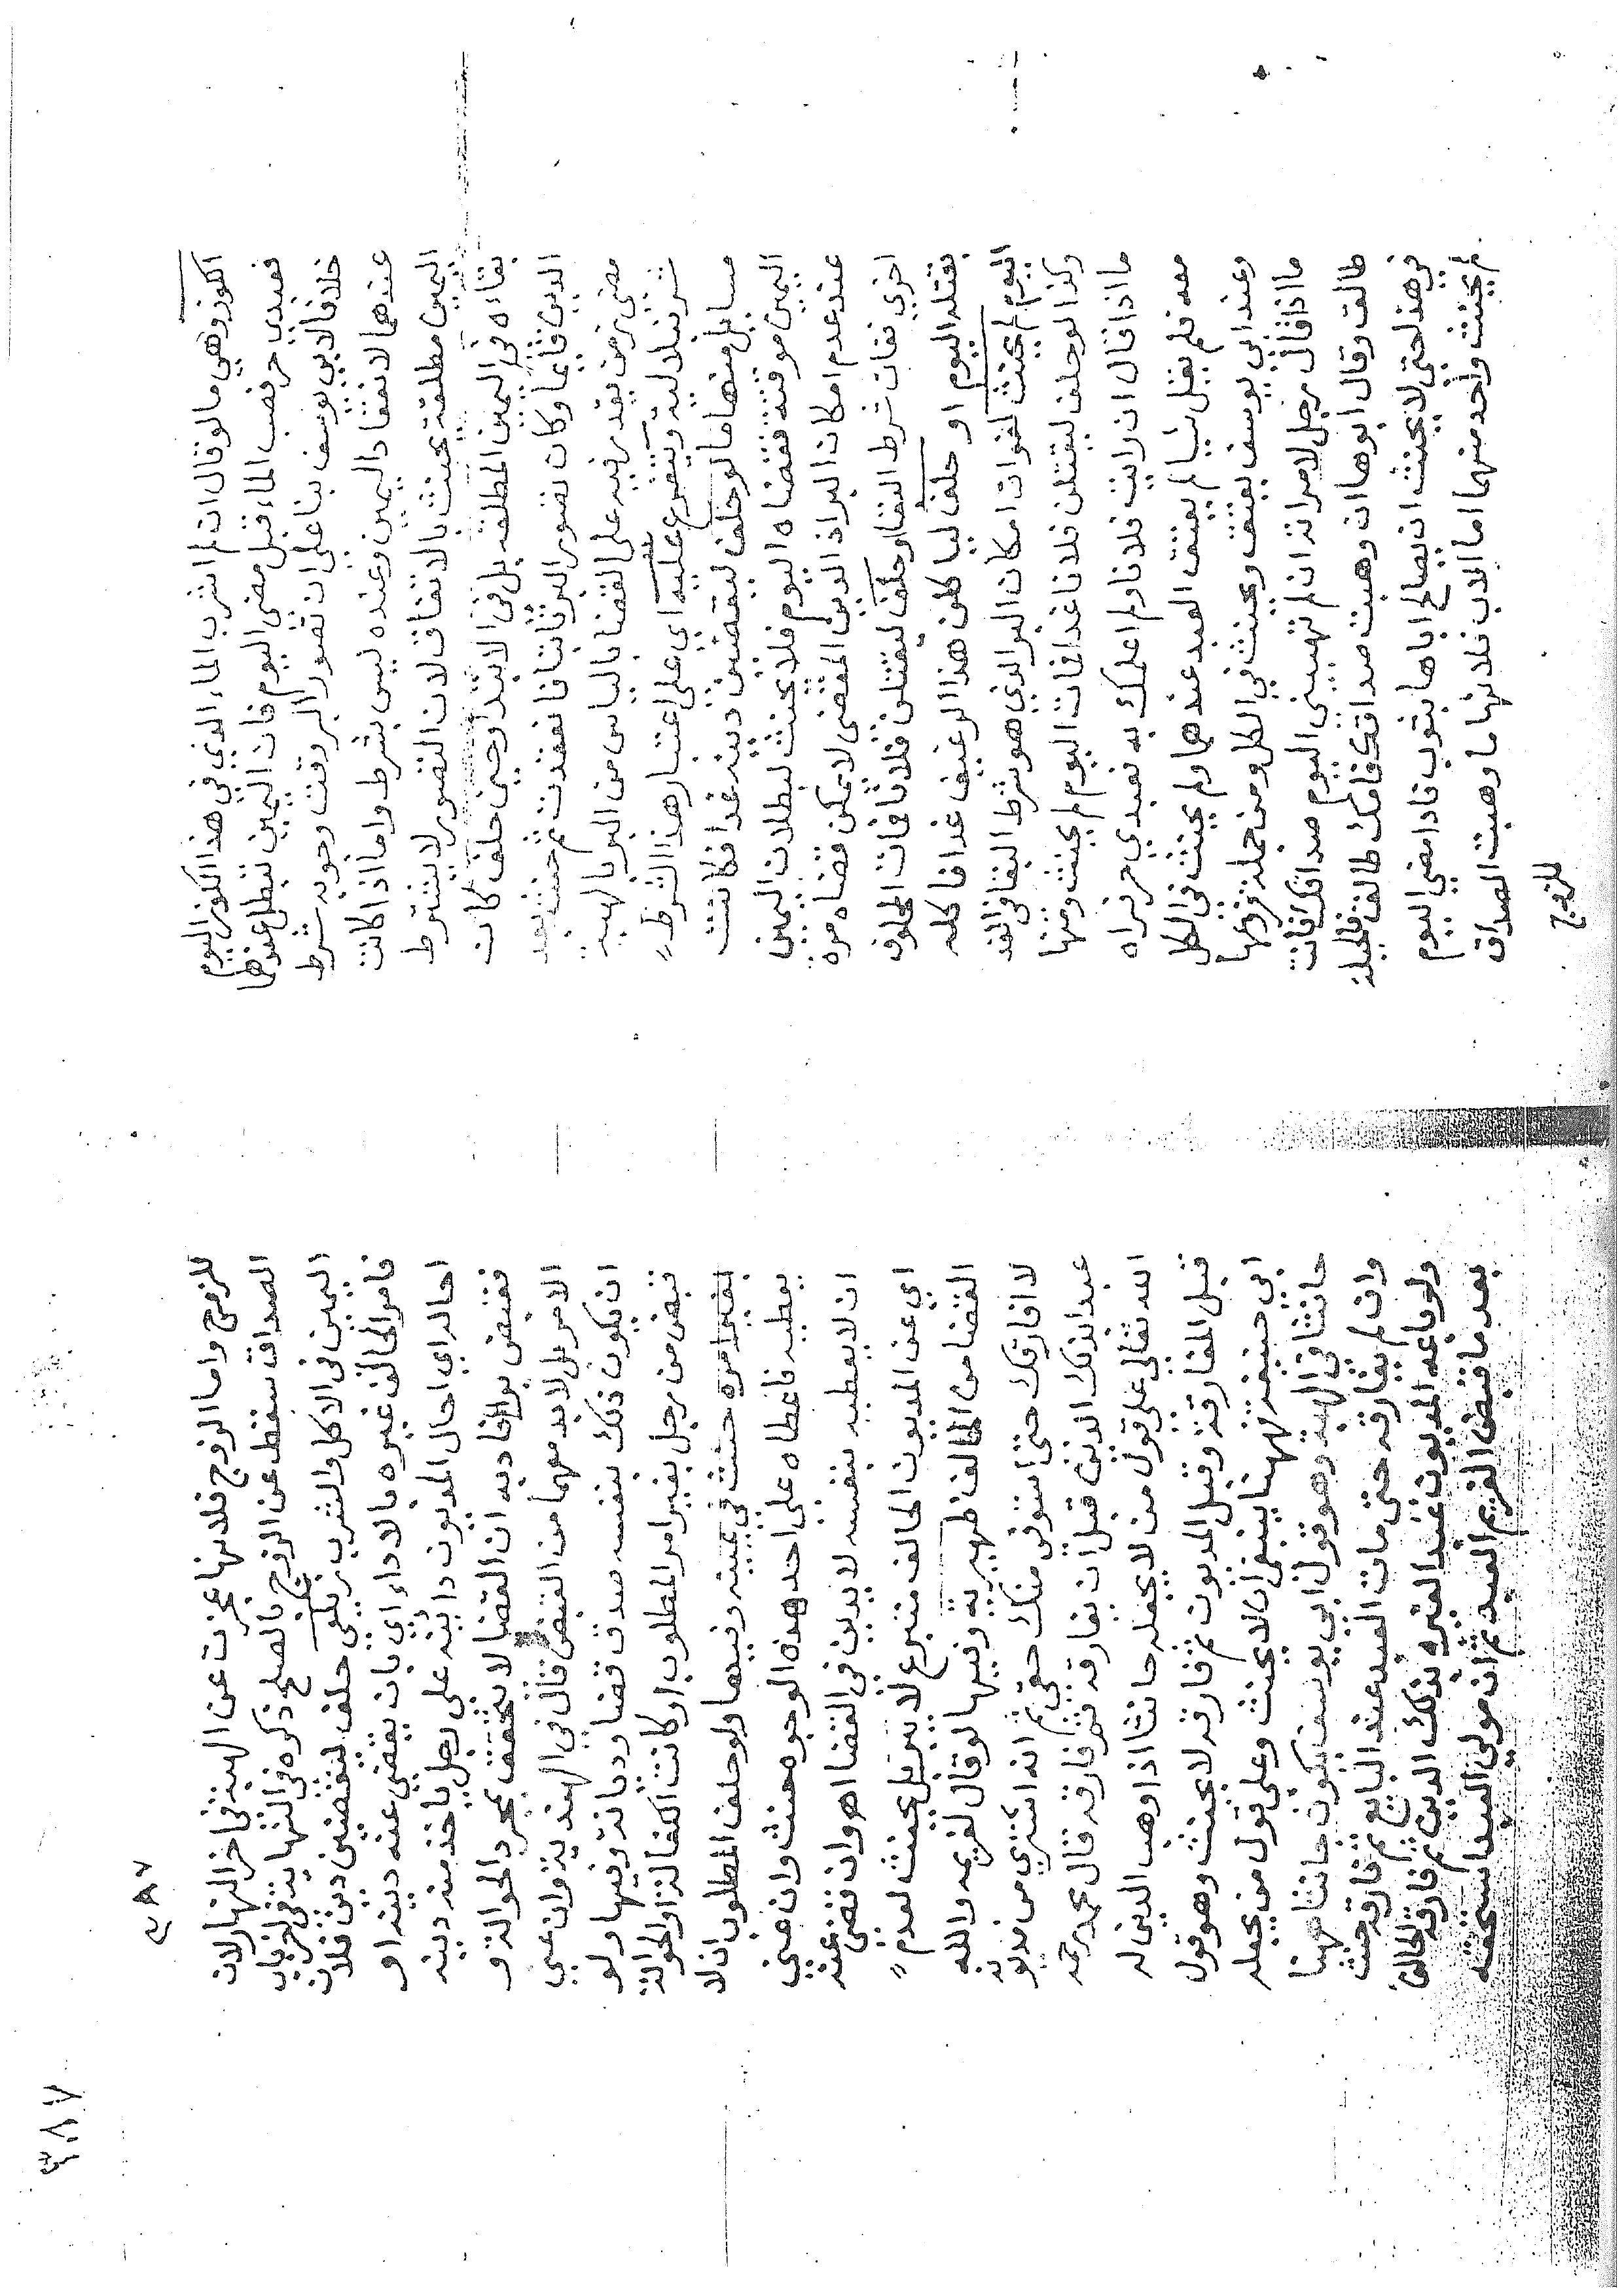 الكوز وهي ما لو قال ان لم اشرب الماء الذي في هذا الكوز اليوم
فعبدي حر فصب الماء قبل مضى اليوم فان اليمين تبطل عندهما
خلافا لابي يوسف بنا على ان تصور البر وقت وجوبه شرط
عندهما لانعقاد اليمين وعنده ليس بشرط واما اذا كانت
اليمين مطلقة يحنث بالاتفاق لان التصور لا يشترط
بقاءه في اليمين المطلقه بل في الابتدا وحين حلف كان
الدين قايما وكان تصور البر ثابتا فانعقدت ثم حنث بعد
مضى زمن يقدر فيه على القضا بالياس من البر بالهبة
شرنبلالية ويتفرع عليه اي على اعتبار هذا الشرط
مسايل منها ما لو حلف ليقضين دينه غدا فكانت
اليمين موقتة فقضاه اليوم فلا يحنث لبطلان اليمين
عند عدم امكان البر اذ الدين المقضى لا يمكن قضاه مرة
اخري ففات شرط البقا او حلف ليقتلن فلانا فمات المحلوف
بقتله اليوم او حلف لياكلن هذا الرغيف غدا فاكله
اليوم لم يحنث لفوات امكان البر الذي هو شرط البقا في الغد
وكذا لو حلف ليقتلن فلانا غدا فمات اليوم لم يحنث ومنها
ما اذا قال ان رايت فلانا ولم اعلمك به فعبدي حر فراه
معه فلم يقل شيا لم يعتق العبد عندهما ولم يحنث في الكل
وعند ابي يوسف يعتق ويحنث في الكل ومن جملة فروعها
ما اذا قال رجل لامراته ان لم تهبيني اليوم صداقك فانت
طالق وقال ابوها ان وهبت صداقك فامك طالق فالحيلة
في هذا حتى لا يحنث ان يصالح اباها بثوب فاذا مضي اليوم
لم يحنث واحد منهما اما الاب فلانها ما وهبت الصداق
للزوج
٣٨٧
٤٨٧
للزوج واما الزوج فلانها عجزت عن الهبة في اخر النهار لان
الصداق سقط عن الزوج بالصلح ذكره في النهاية في اخر باب
اليمين في الاكل والشرب زيلعي حلف لتقضين دين فلان
فامر الحالف غيره بالاداء اي بان يقضي عنه دينه او
احاله اي احال المديون داينه على رجل ياخذ منه دينه
فقبض بر افاد به ان القضا لا يتحقق بمجرد الحوالة و
الامر بل لا بد معهما من القبض قال في الهنديه وان عني
ان يكون ذلك بنفسه صدق قضا وديانة وفيها ولو
قبض من رجل بغير امر المطلوب او كانت الكفالة او الحوالة
بغير امره حنث في يمينه وفيها ولو حلف المطلوب ان لا
يعطيه فاعطاه على احد هذه الوجوه حنث وان عني
ان لا يعطيه بنفسه لا يدين في القضا اهـ وان قضى عنه
اي عن المديون الحالف متبرع لا يبر بل يحنث لعدم
القضا من الحالف ظهيرية وفيها لو قال لغريمه والله
لا افارقك حتى استوفي منك حقي ثم انه اشتري من مديونه
عبدا بذلك الدين قبل ان يفارقه ثم فارقه قال محمد رحمه
الله تعالى على قول من لا يجعله حانثا اذا وهب الدين له
قبل المفارقة وقبل المديون ثم فارقه لا يحنث وهو قول
ابي حنيفة ههنا ينبغي ان لا يحنث وعلى قول من يجعله
حانثا في الهبة وهو قول ابي يوسف يكون حانثا ههنا
وان لم يفارقه حتى مات العبد عند البايع ثم فارقه حنث
ولو باعه المديون عبدا لغيره بذلك الدين ثم فارقه الحالف
بعد ما قبض الغريم العبد ثم ان مولى العبد استحقه